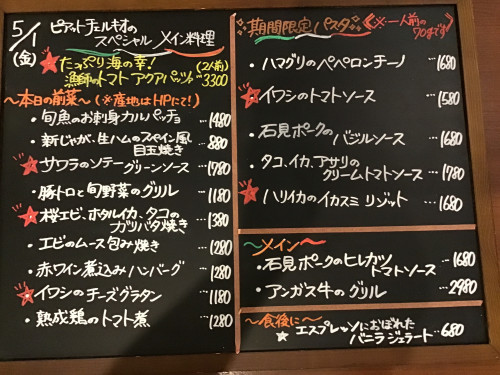 5/1
(金)
ピアットチェルキオの
スペシャル メイン料理
★たっぷり海の幸！(2人前)
漁師のトマトアクアパッツァ 3300
〜本日の前菜〜(※産地はHPにて!)
・旬魚のお刺身カルパッチョ …1480
・新じゃが、生ハムのスペイン風
目玉焼き …880
★サワラのソテーグリーンソース …1780
・豚トロと旬野菜のグリル …1180
★桜エビ、ホタルイカ、タコの
ガリバタ焼き …1380
・エビのムース包み焼き …1280
・赤ワイン煮込みハンバーグ …1280
★イワシのチーズグラタン …1180
・熟成鶏のトマト煮 …1280
期間限定パスタ《※一人前の
70gです》
・ハマグリのペペロンチーノ …1680
★イワシのトマトソース …1580
・石見ポークのバジルソース …1680
・タコ、イカ、アサリの
クリームトマトソース …1780
★ハリイカのイカスミリゾット …1680
〜メイン〜
・石見ポークのヒレカツ
トマトソース …1680
・アンガス牛のグリル …2980
〜食後に〜
★エスプレッソにおぼれた
バニラジェラート …680